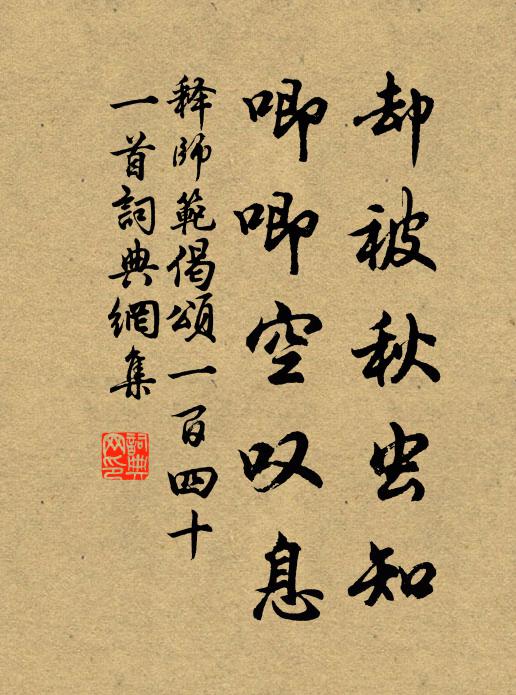 却被秋虫知
唧唧空叹息
释师範偈頌一百四十
一首詞典網集
詞典
网印